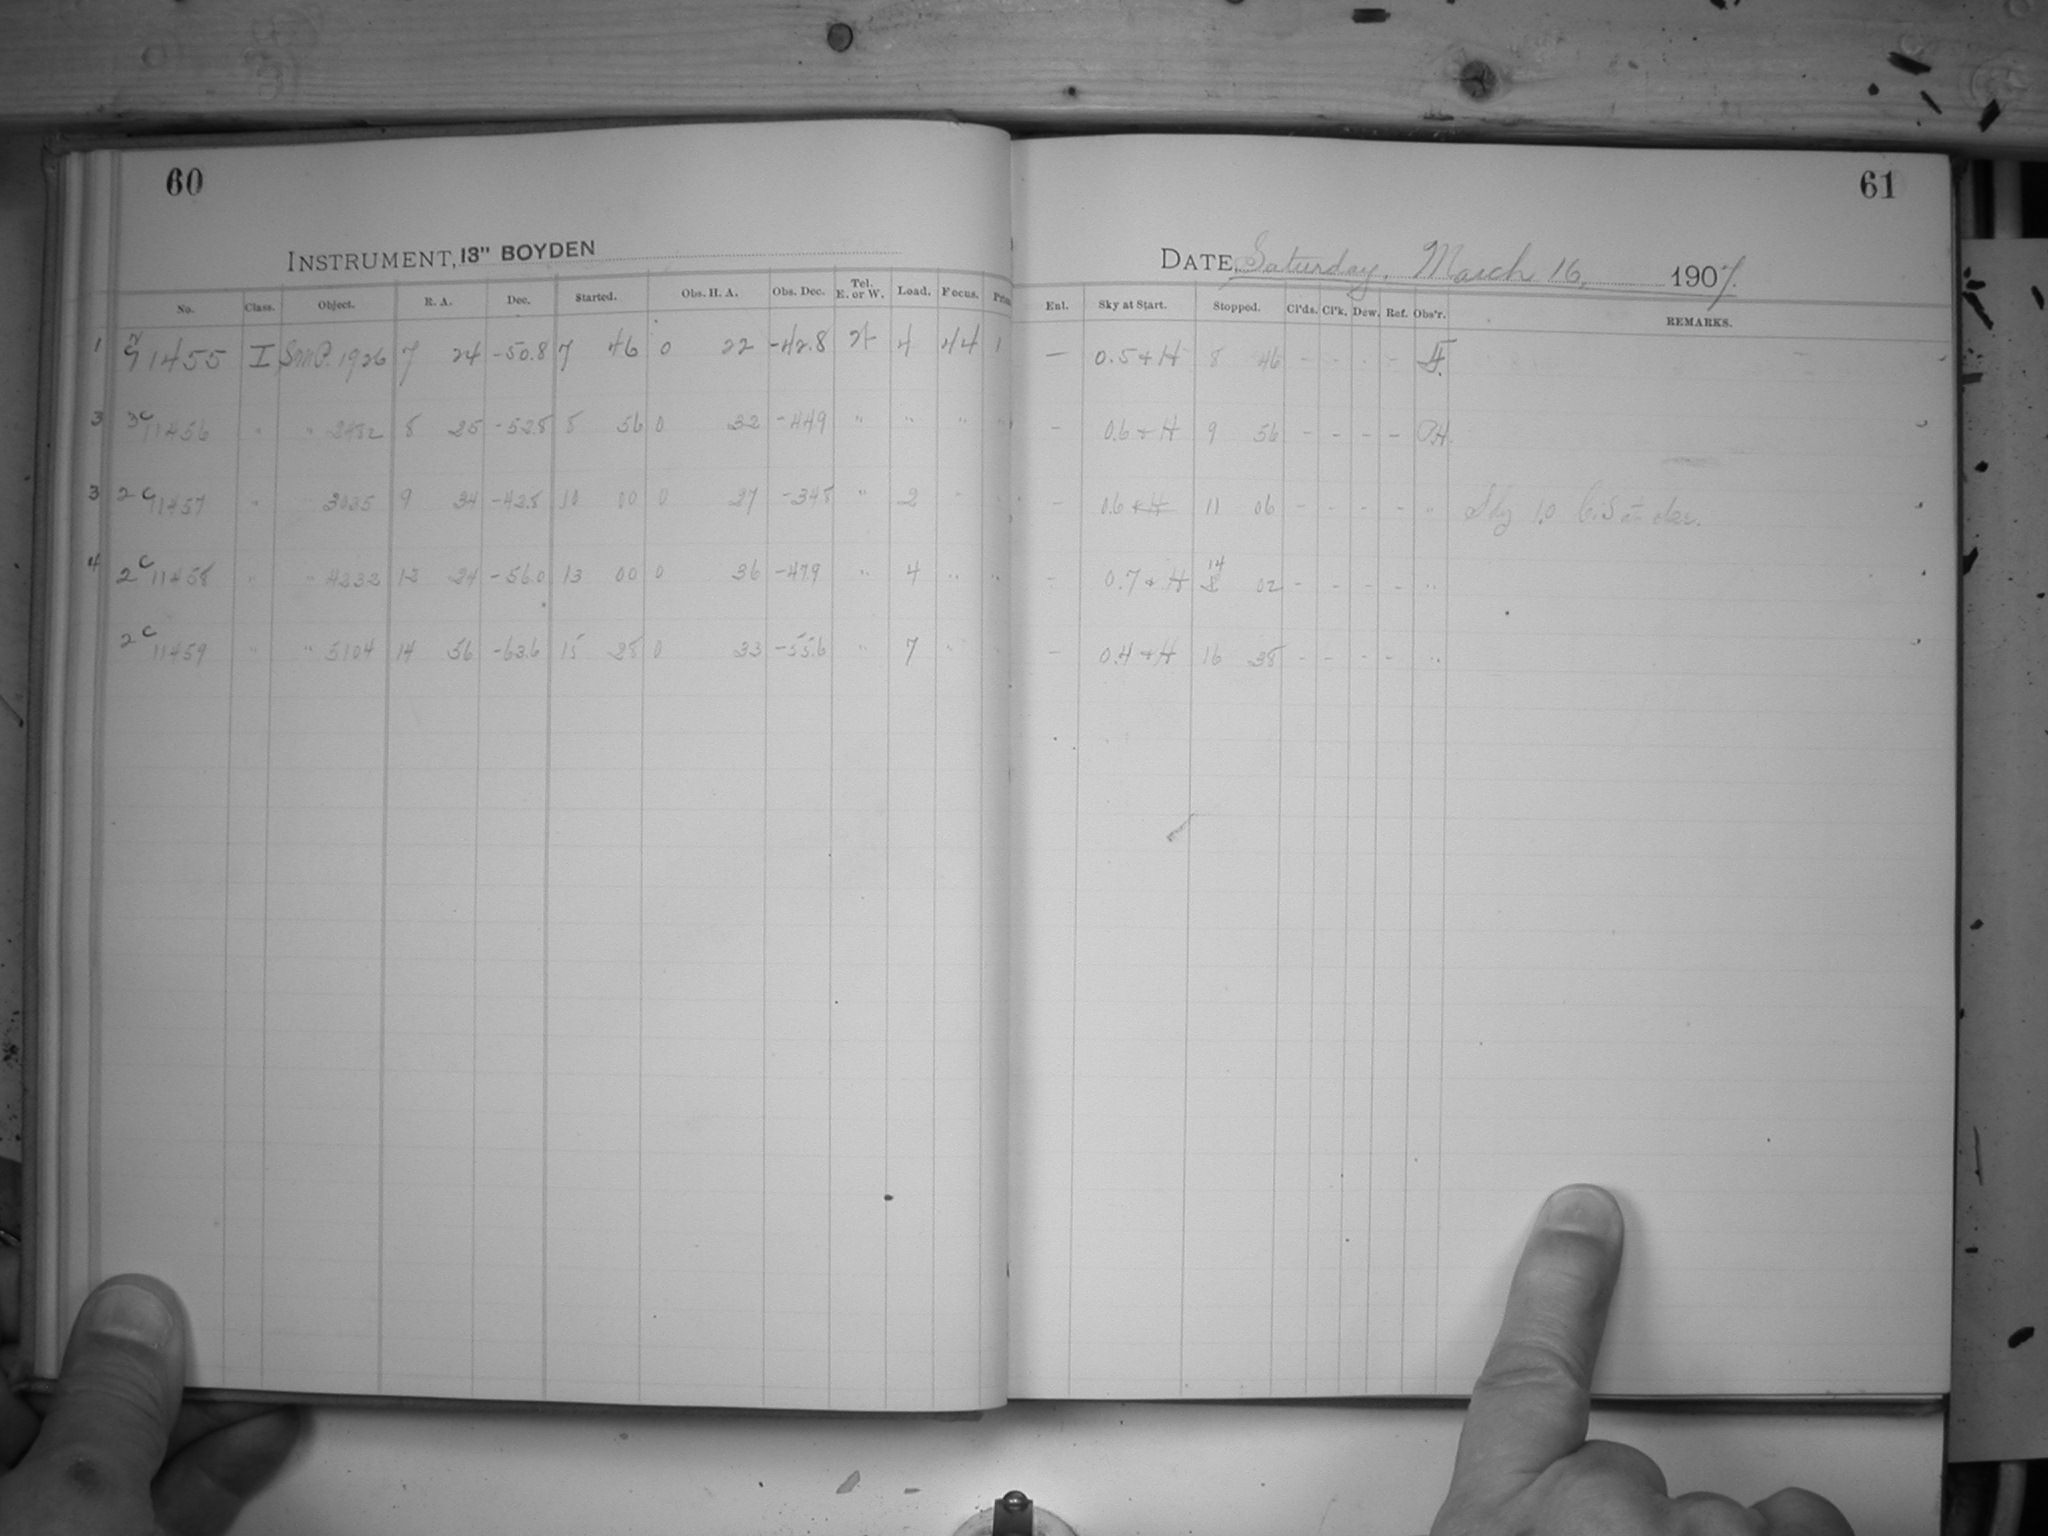 60
INSTRUMENT, 13" BOYDEN
No. Class. Object. R. A. Dec. Started. Obs. H. A. Obs. Dec. Tel. E. or W. Load. Focus.
1 11455 I 1926 7 24 -50.8 7 46 0 22 -42.8 4 44 1
3 3c 11456 " " 2482 8 25 -52.8 8 56 0 32 -449 " " " "
3 2 c 11457 " 3035 9 34 -42.8 10 00 0 27 -348 " 2 "
4 2 c 11458 " " 4232 12 24 -56.0 13 00 0 36 -479 " 4 " "
2 c 11459 " " 5104 14 56 -63.6 15 28 0 33 -55.6 " 7 " "
61
DATE, Saturday, March 16, 1907.
Enl. Sky at Start. Stopped. Cl'ds. Cl'k. Dew. Ref. Obs'r. REMARKS.
— 0.5 + H 8 46 - - - -
- 0.6 + H 9 56 - - - - P.H.
- 0.6 + H 11 06 - - - - " Sky 1.0
- 0.7 + H 14 02 - - - - "
- 0.4 + H 16 38 - - - - "